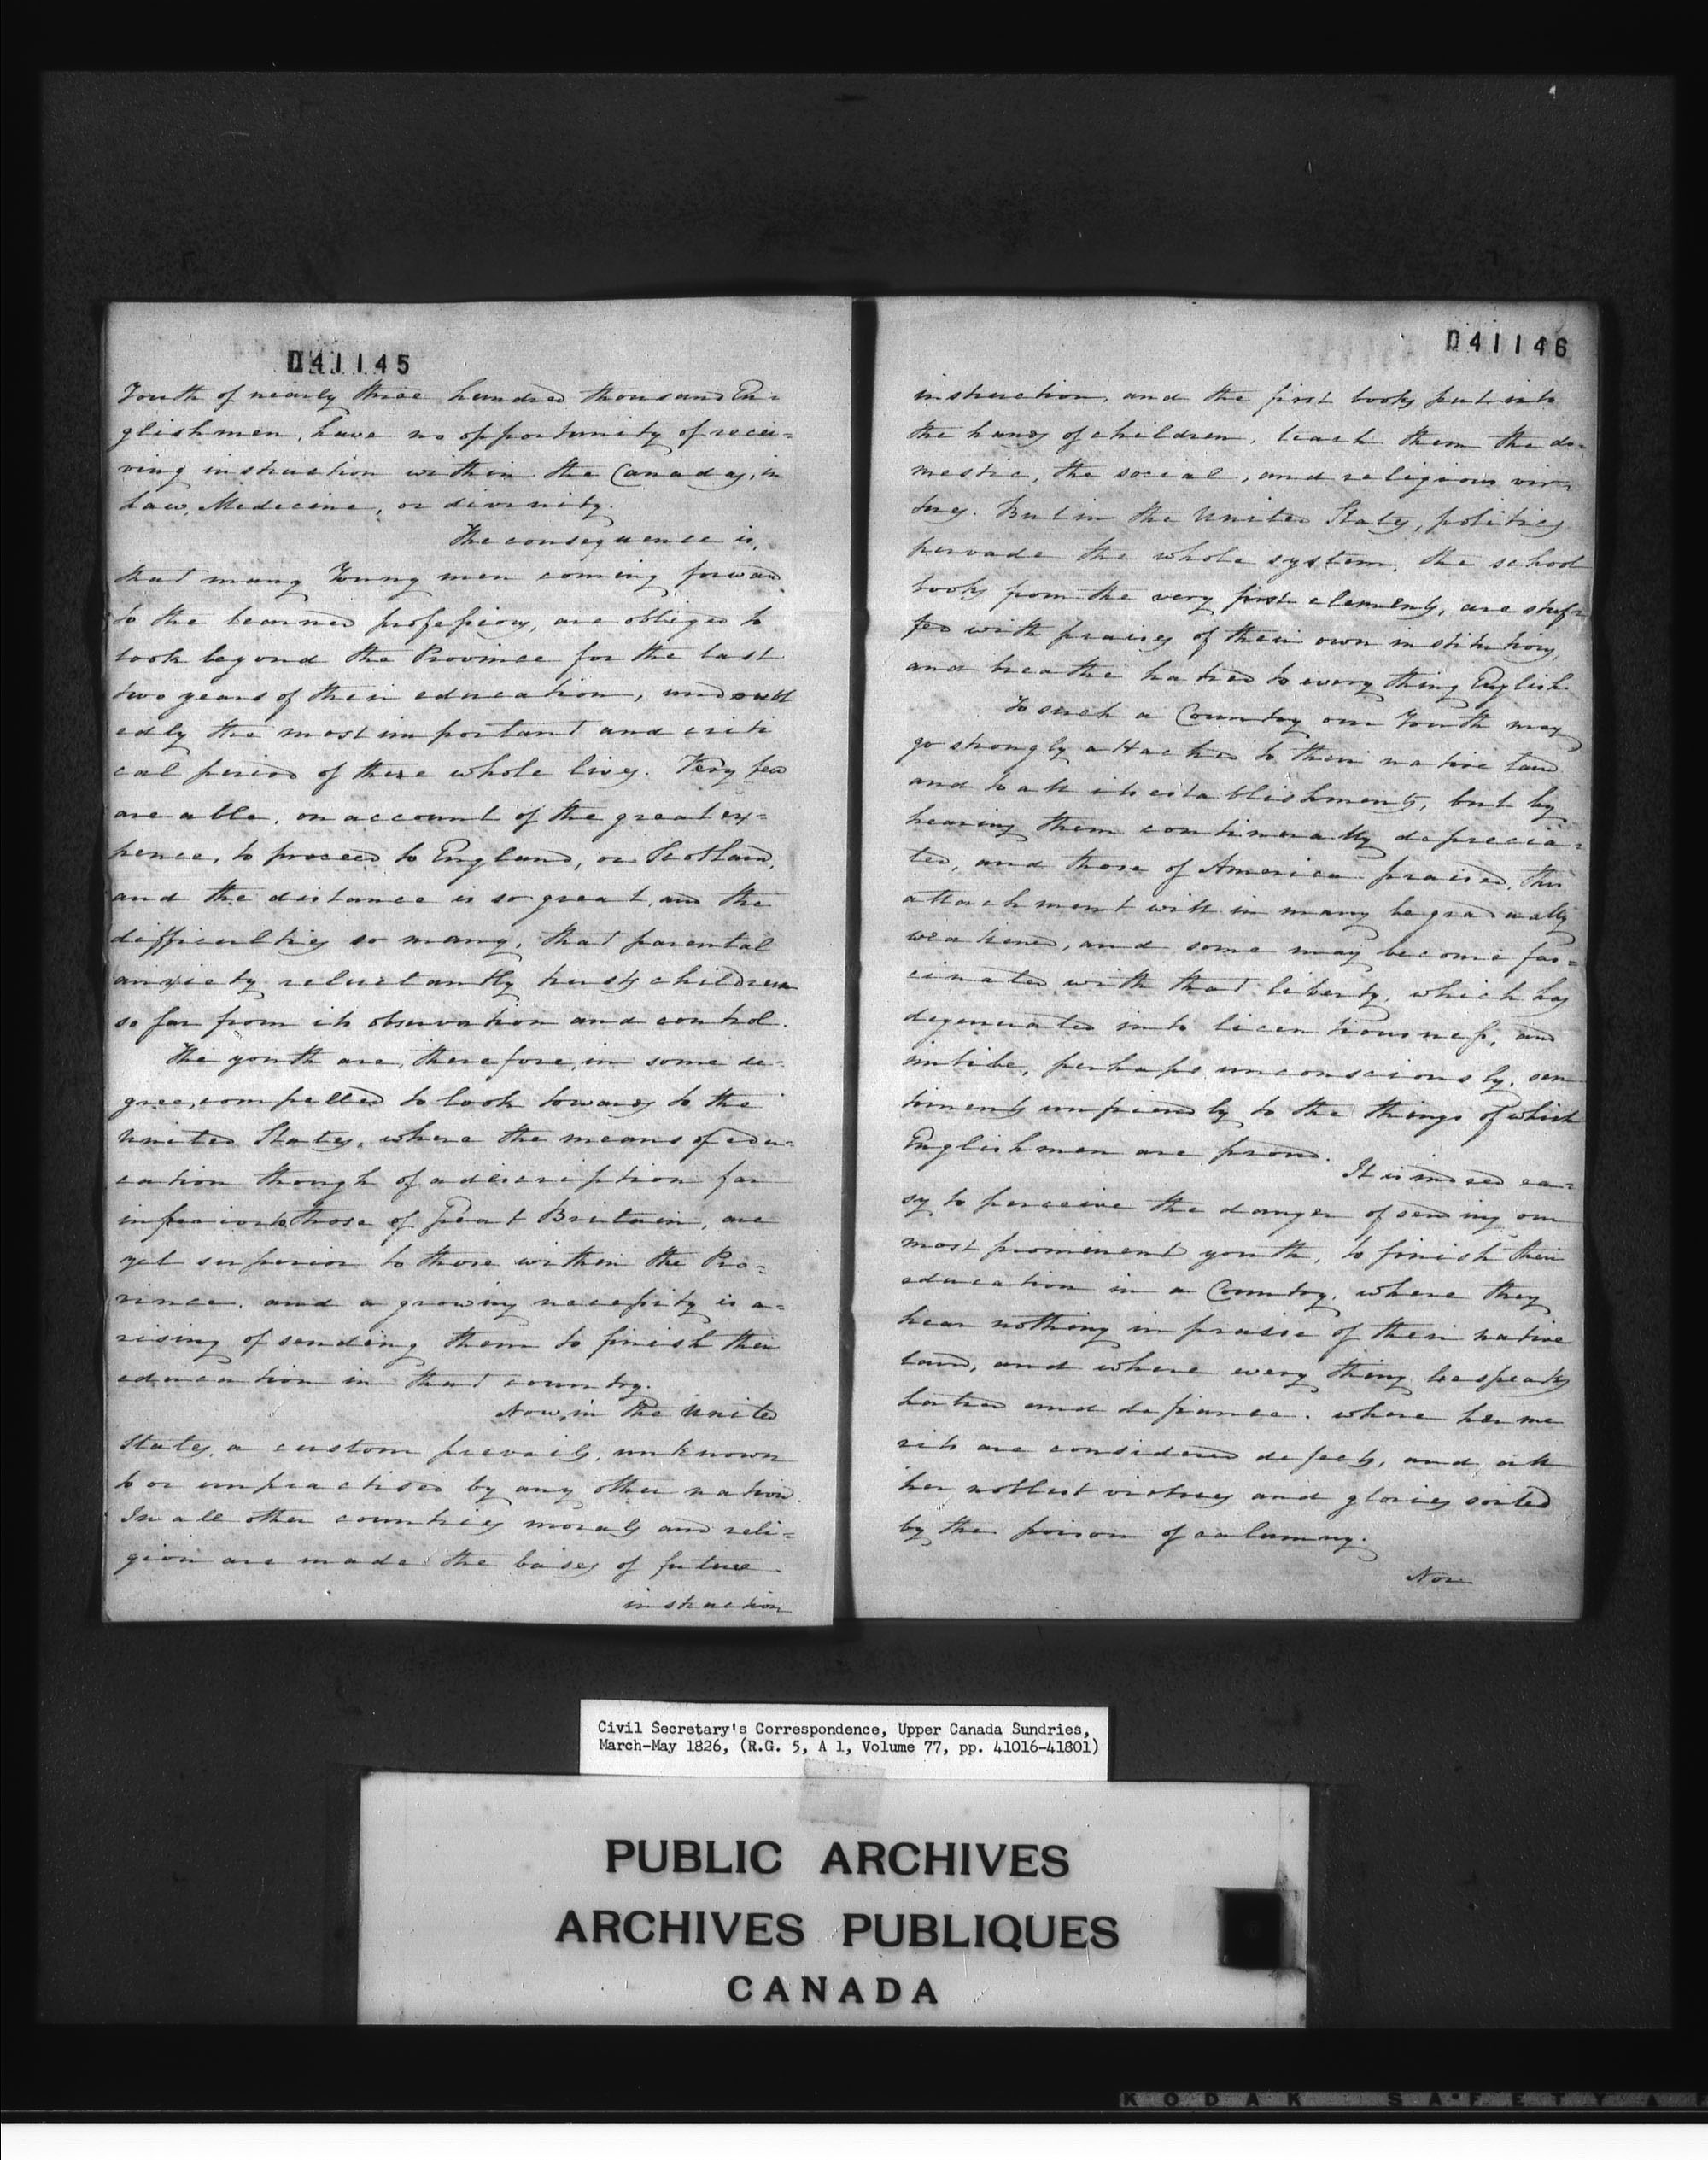 D41145
Youth of nearly three hundred thousand En-
glishmen, have no opportunity of recei-
ving instruction within the Canadas, in
Law, Medicine, or divinity.
The consequence is,
that many Young men coming forward
to the learned professions, are obliged to
look beyond the Province for the last
two years of their education, undoubt
edly the most important and criti
cal period of there whole lives. Very few
are able, on account of the great ex-
pence, to proceed to England, or Scotland,
and the distance is so great, and the
difficulties so many, that parental
anxiety reluctantly trusts children
so far from its observation and control.
The youth are, therefore, in some de-
gree, compelled to look towards to the
United States, where the means of edu-
cation though of a description far
inferior to those of Great Britain, are
yet superior to those within the Pro-
vince, and a growing necessity is a-
rising of sending them to finish their
education in that country.
Now, in the United
States, a custom prevails, unknown
to or unpractised by any other nation.
In all other countries morals and reli-
gion are made the bases of future
instruction
D41146
instruction, and the first books put into
the hands of children, teach them the do-
mestic, the social, and religious vir-
tues. But in the United States, politics
pervade the whole system, the school
books from the very first elements, are stuf-
fed with praises of their own institutions,
and breathe hatred to every thing English.
To such a Country our Youth may
go strongly attached to their native land
and to all its establishments, but by
hearing them continually deprecia-
ted, and those of America praised, this
attachment will in many be gradually
weakened, and some may become fas-
cinated with that liberty, which has
degenerated into licentiousness, and
imbibe, perhaps unconsciously, sen
timents unfriendly to the things of which
Englishmen are proud.
It is indeed ea-
sy to perceive the danger of sending our
most prominent youth, to finish their
education in a Country, where they
hear nothing in praise of their native
land, and where every thing bespeaks
hatred and defiance. where her me
rits are considered defects, and all
her noblest virtues and glories soiled
by the poison of calumny.
Nor
Civil Secretary's Correspondence, Upper Canada Sundries,
March-May 1826, (R.G. 5, A 1, Volume 77, pp. 41016-41801)
PUBLIC ARCHIVES
ARCHIVES PUBLIQUES
CANADA
KODAK SAFETY